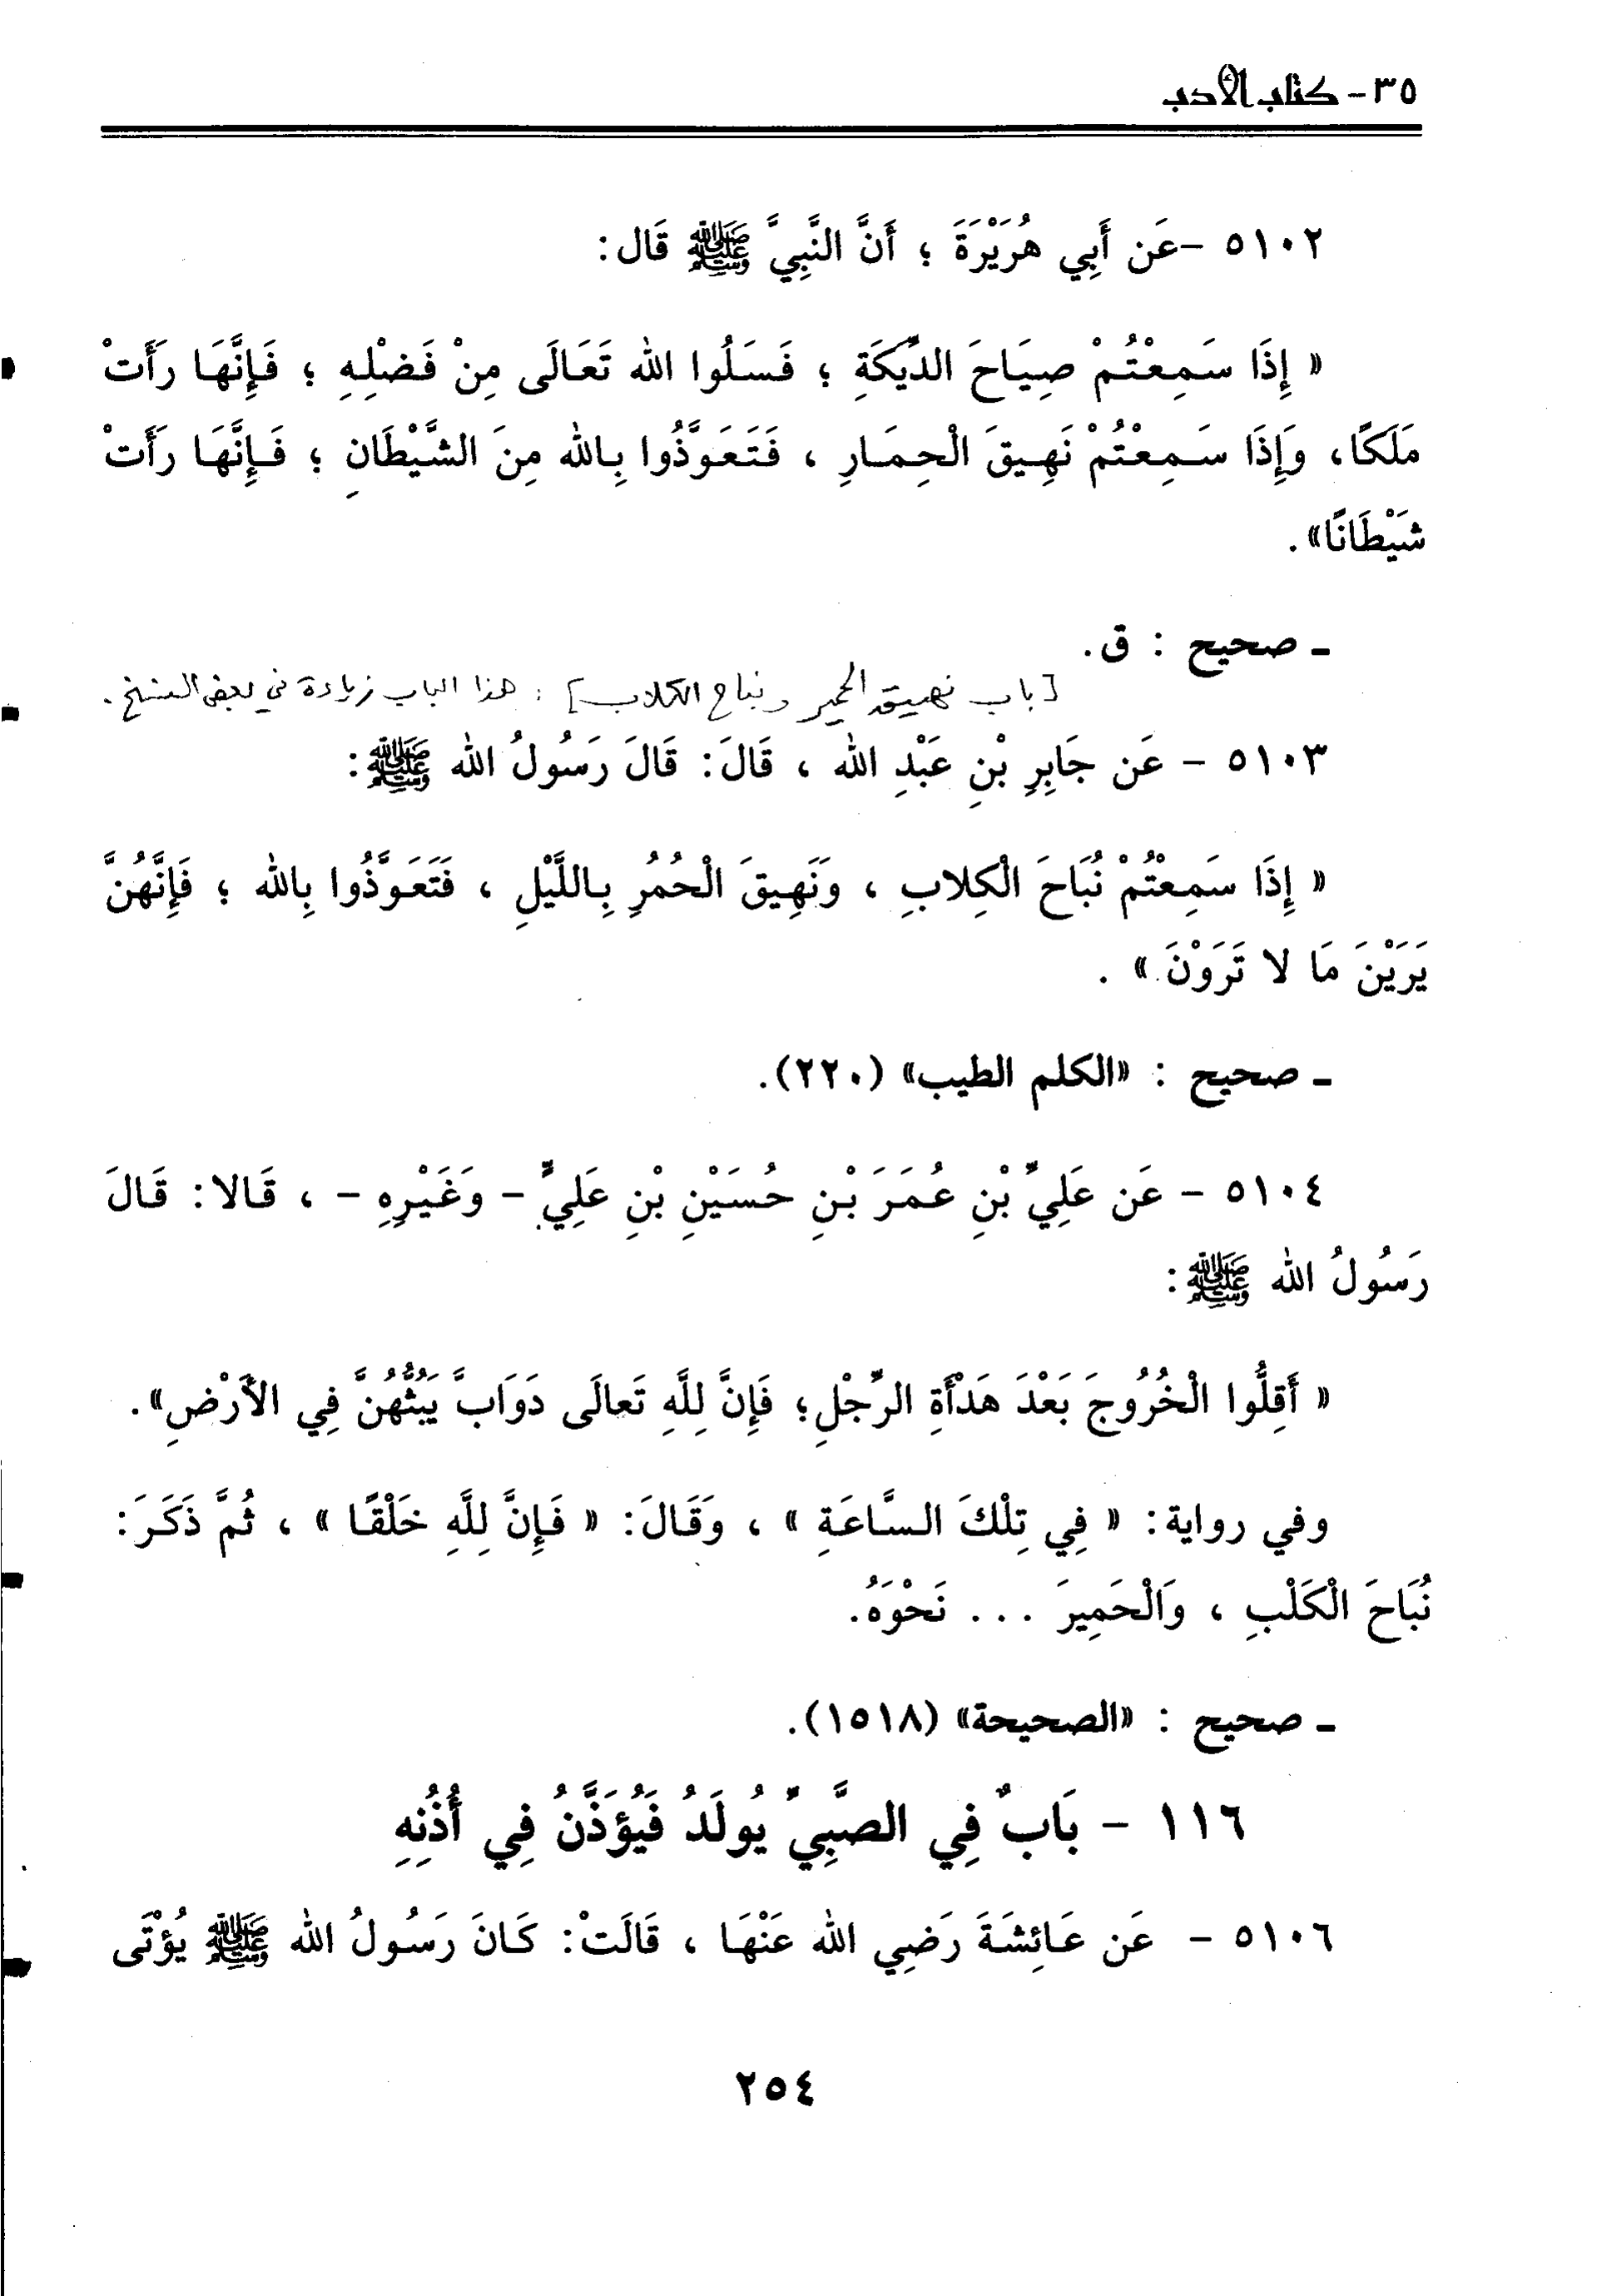 ٣٥ - كتاب الأدب
٥١٠٢ -عَن أَبِي هُرَيْرَةَ ؛ أَنَّ النَّبِيَّ ﷺ قَال:
« إِذَا سَمِعْتُمْ صِيَاحَ الدِّيَكَةِ ؛ فَسَلُوا الله تَعَالَى مِنْ فَضْلِهِ ؛ فَإِنَّهَا رَأَتْ
مَلَكًا، وَإِذَا سَمِعْتُمْ نَهِيقَ الْحِمَارِ ، فَتَعَوَّذُوا بِالله مِنَ الشَّيْطَانِ ؛ فَإِنَّهَا رَأَتْ
شَيْطَانًا» .
ـ صحيح : ق.
[باب نهيق الحمير ونباح الكلاب] : هذا الباب زيادة في بعض النسخ.
٥١٠٣ - عَن جَابِرِ بْنِ عَبْدِ الله ، قَالَ: قَالَ رَسُولُ الله ﷺ:
« إِذَا سَمِعْتُمْ نُبَاحَ الْكِلابِ ، وَنَهِيقَ الْحُمُرِ بِاللَّيْلِ ، فَتَعَوَّذُوا بِالله ؛ فَإِنَّهُنَّ
يَرَيْنَ مَا لا تَرَوْنَ » .
ـ صحيح : «الكلم الطيب» (٢٢٠).
٥١٠٤ - عَن عَلِيِّ بْنِ عُمَرَ بْنِ حُسَيْنِ بْنِ عَلِيٍّ - وَغَيْرِهِ - ، قَالا: قَالَ
رَسُولُ الله ﷺ:
« أَقِلُّوا الْخُرُوجَ بَعْدَ هَدْأَةِ الرِّجْلِ؛ فَإِنَّ لِلَّهِ تَعالَى دَوَابَّ يَبُثُّهُنَّ فِي الأَرْضِ».
وفي رواية: « فِي تِلْكَ السَّاعَةِ » ، وَقَالَ: « فَإِنَّ لِلَّهِ خَلْقًا » ، ثُمَّ ذَكَرَ:
نُبَاحَ الْكَلْبِ ، وَالْحَمِيرَ . . . نَحْوَهُ.
ـ صحيح : «الصحيحة» (١٥١٨).
١١٦ - بَابٌ فِي الصَّبِيِّ يُولَدُ فَيُؤَذَّنُ فِي أُذُنِهِ
٥١٠٦ - عَن عَائِشَةَ رَضِي الله عَنْهَا ، قَالَتْ: كَانَ رَسُولُ الله ﷺ يُؤْتَى
٢٥٤